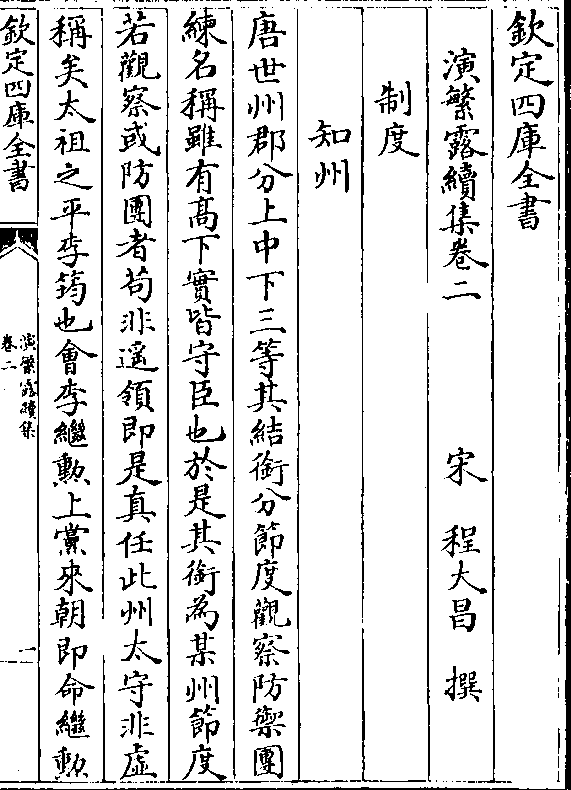 欽定四庫全書
演繁露續集卷二
宋 程大昌 撰
制度
知州
唐世州郡分上中下三等其結銜分節度觀察防禦團
練名稱雖有髙下實皆守臣也於是其銜為某州節度
若觀察或防團者苟非遥領即是真任此州太守非虛
稱矣太祖之平李筠也會李繼勲上黨來朝即命繼勲
欽定四庫全書
演繁露續集
卷二
一